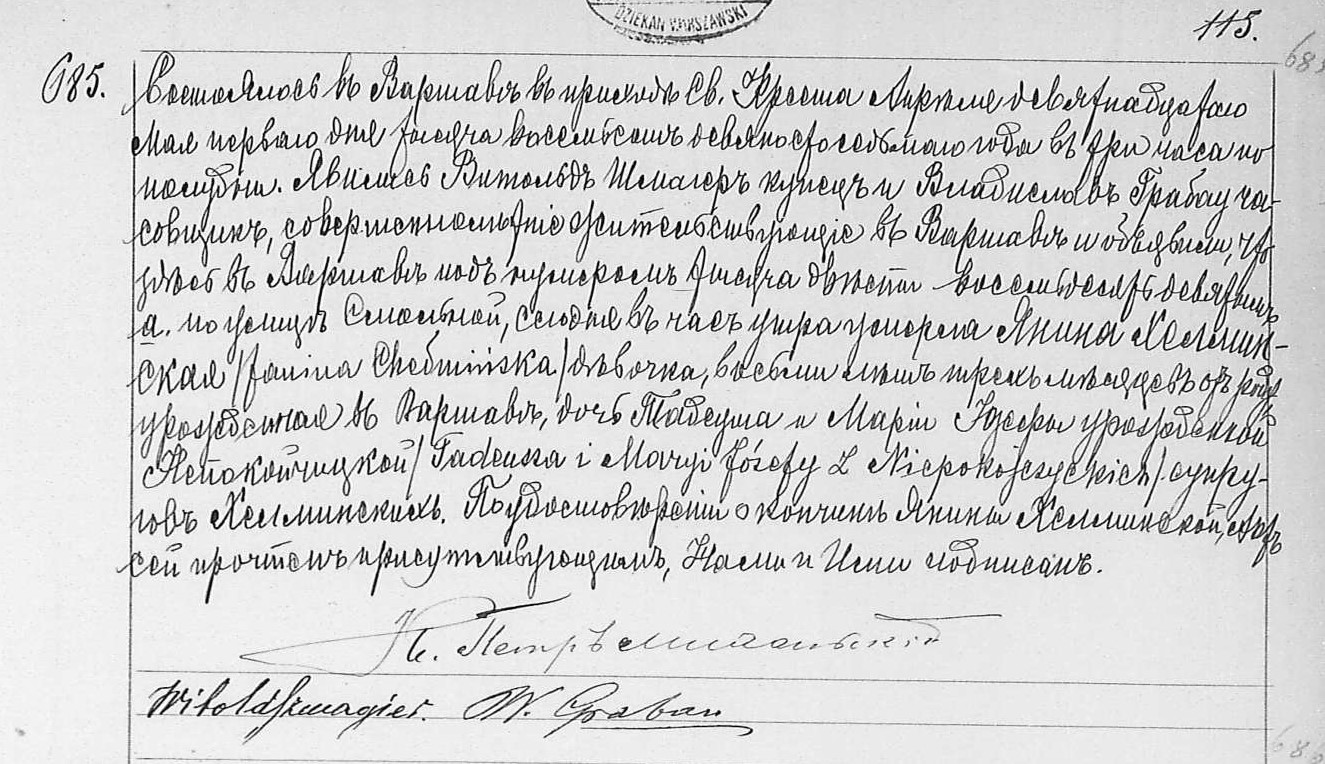 DZIEKAN WARSZAWSKI
115.
685.
Состоялось въ Варшавѣ въ приходѣ Св. Креста Апрѣля девятнадцатаго
Мая перваго дня тысяча восемьсотъ девяносто седьмаго года въ три часа по
полудни. Явились Витольдъ Шмагеръ купецъ и Владиславъ Грабау ча-
совщикъ, совершеннолѣтніе жительствующіе въ Варшавѣ и объявили, что
здѣсь въ Варшавѣ подъ нумеромъ тысяча двѣсти восемьдесятъ девятымъ
а. по улицѣ Смольной, сегодня въ часъ утра умерла Янина Хелмин-
ская /Janina Chełmińska/ дѣвочка, восьми лѣтъ трехъ мѣсяцевъ отъ роду
урожденная въ Варшавѣ, дочь Тадеуша и Маріи Юзефы урожденной
Непокойчицкой /Tadeusza i Maryi Józefy z Niepokojczyckich/ супру-
говъ Хелминскихъ. По удостовѣреніи о кончинѣ Янины Хелминской, Актъ
сей прочтенъ присутствующимъ, Нами и Ими подписанъ.
Кс. Петръ
Witold Szmagier. W. Grabau